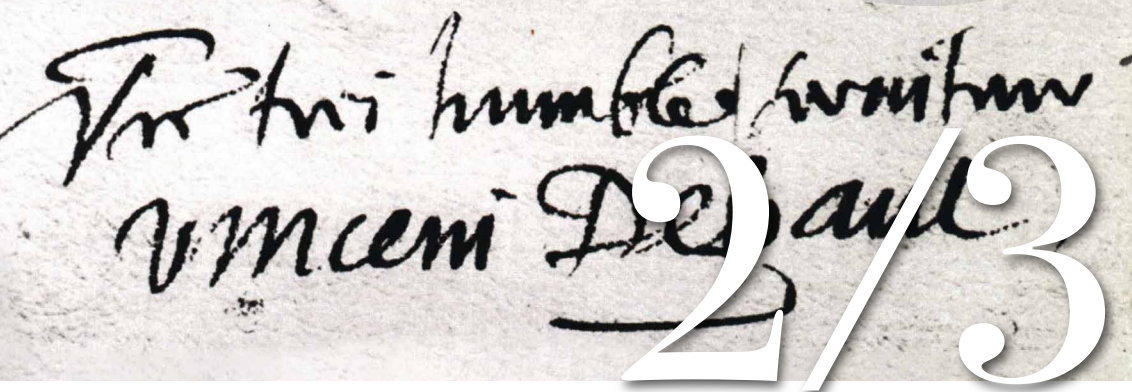 Vre tres humble serviteur
Vincent Depaul
2/3